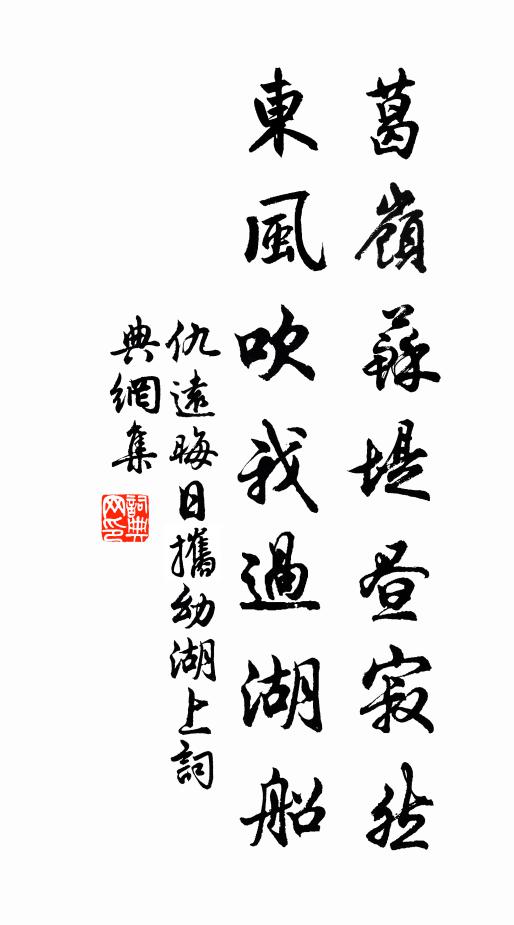 葛嶺蘇堤昼寂然
東風吹我過湖船
仇遠晦日攜幼湖上詞
典網集
詞典網印